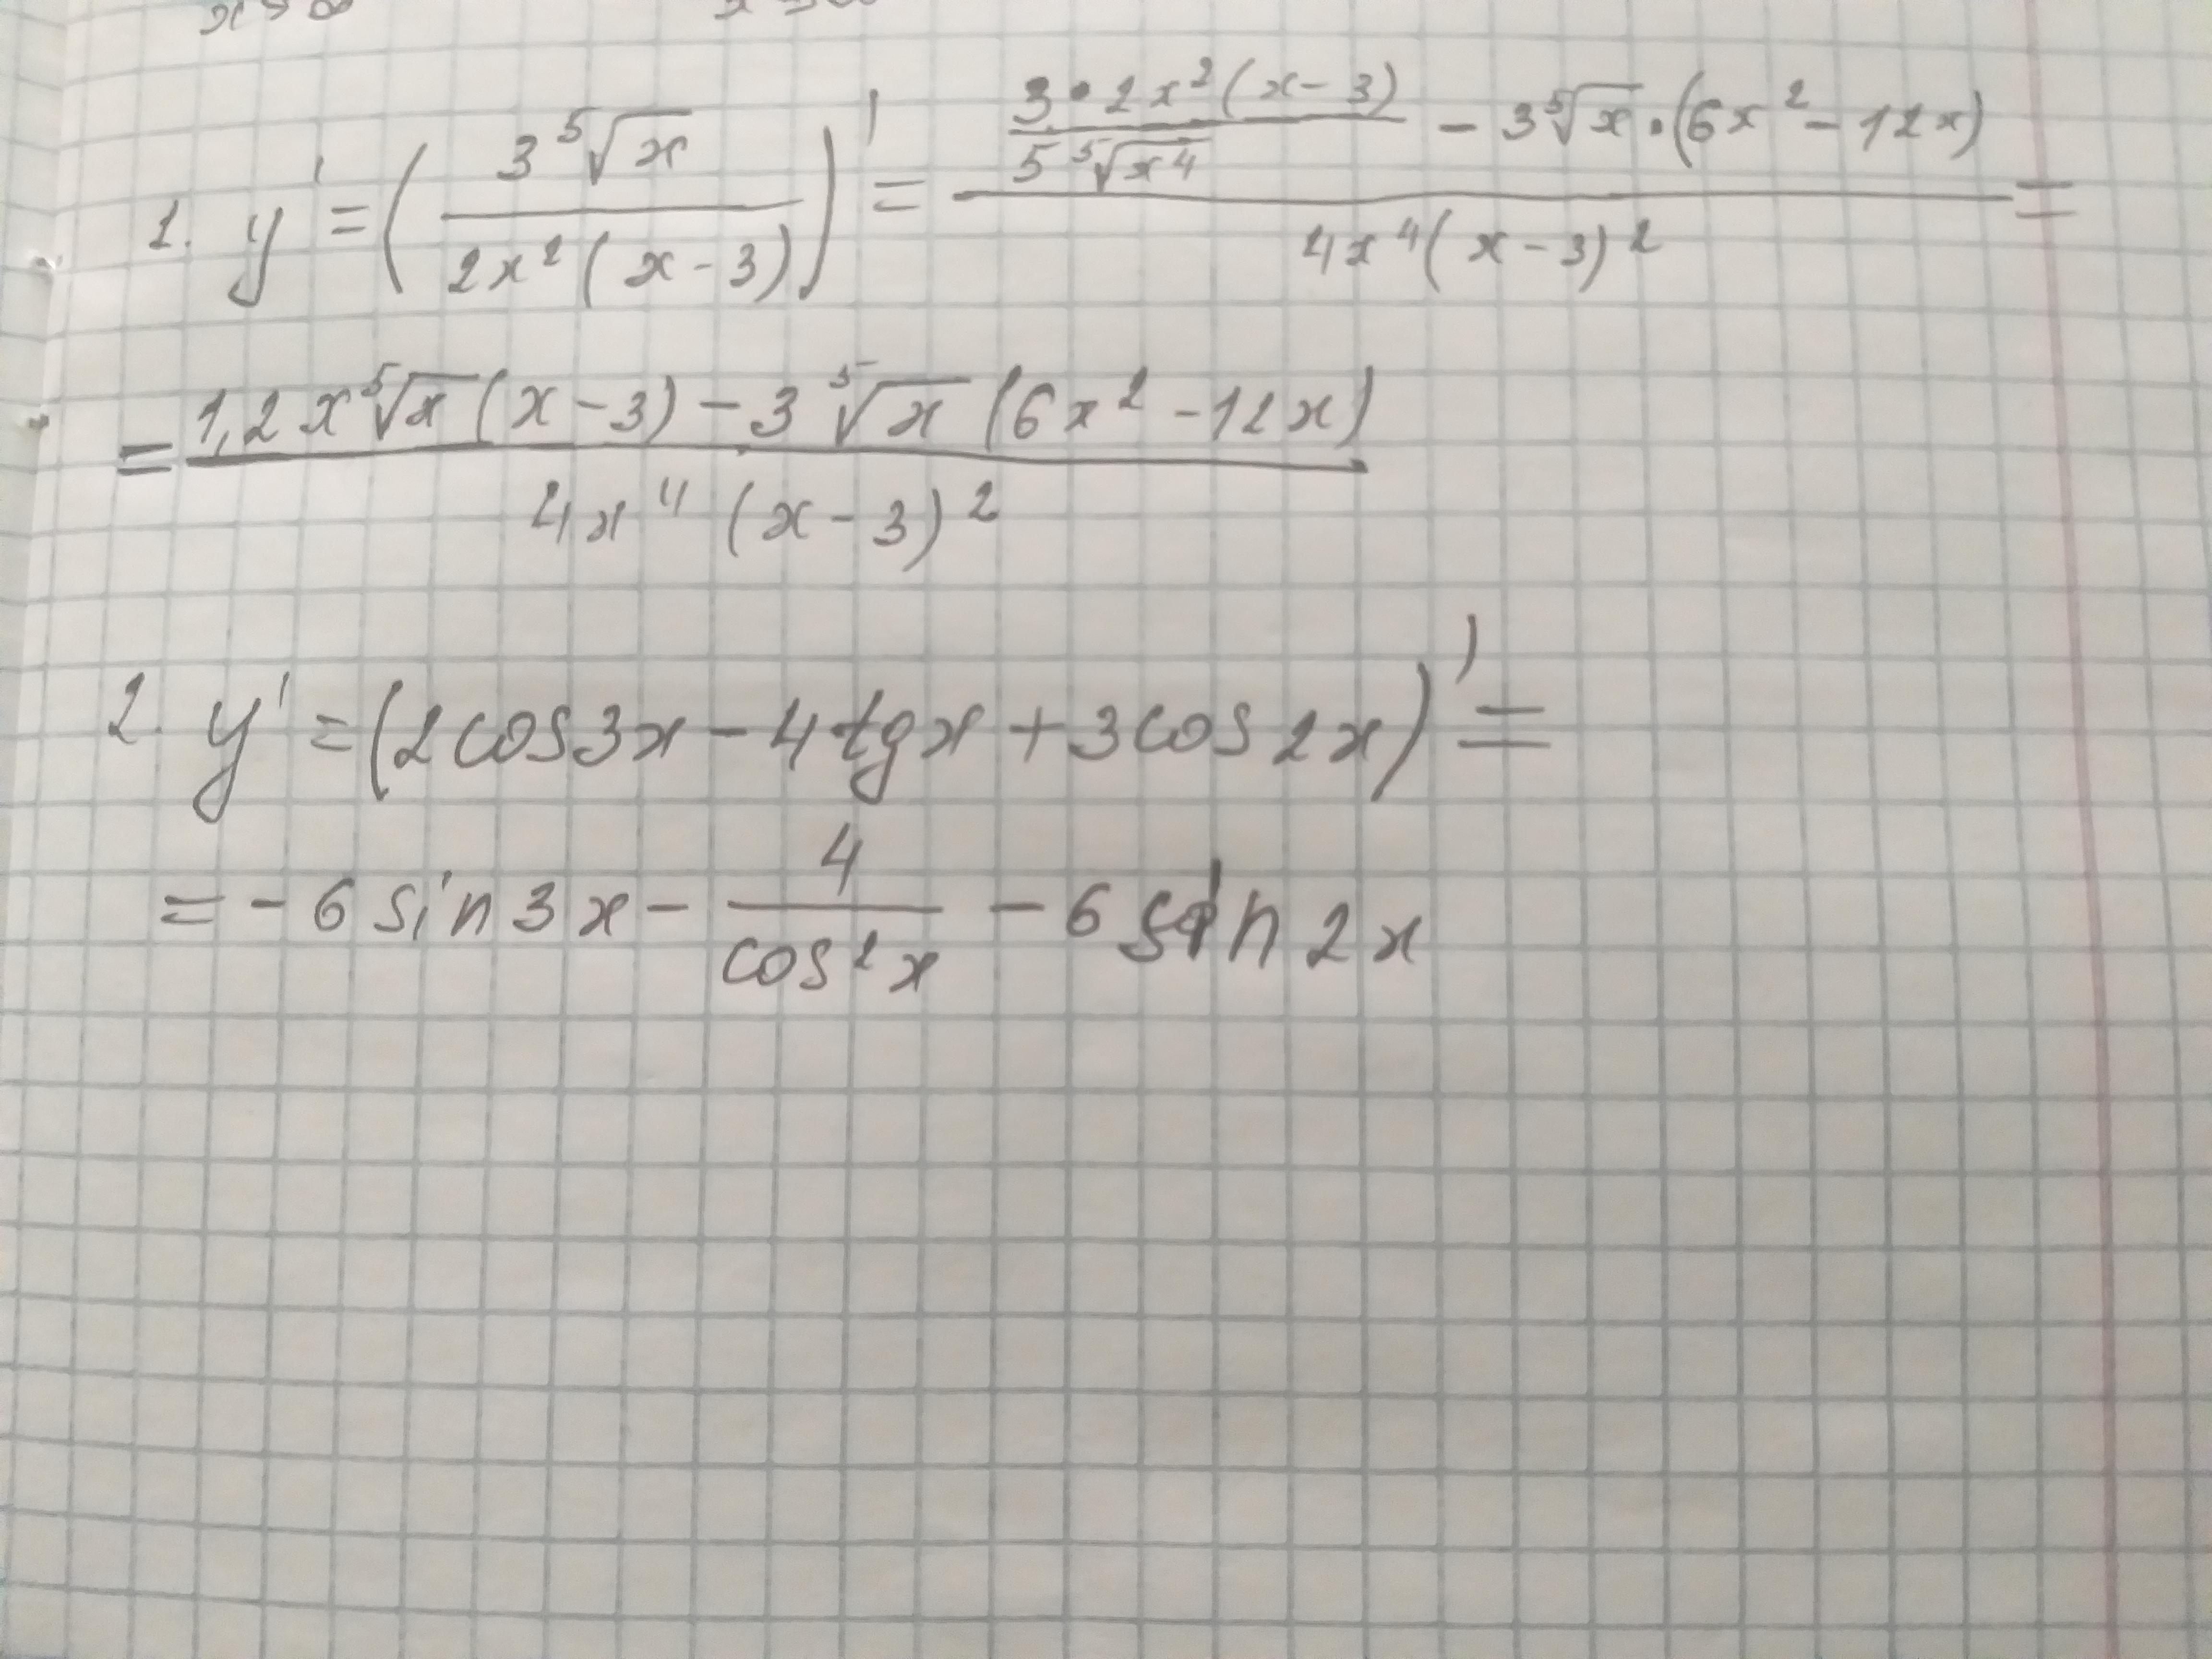 x→∞ x→∞
1. y' = (3⁵√x / 2x²(x-3))' = (3·2x²(x-3) / 5⁵√x⁴ - 3⁵√x·(6x²-12x)) / 4x⁴(x-3)² =
= (1,2x⁵√x(x-3) - 3⁵√x(6x²-12x)) / 4x⁴(x-3)²
2. y' = (2cos3x - 4tgx + 3cos2x)' =
= -6sin3x - 4/cos²x - 6sin2x